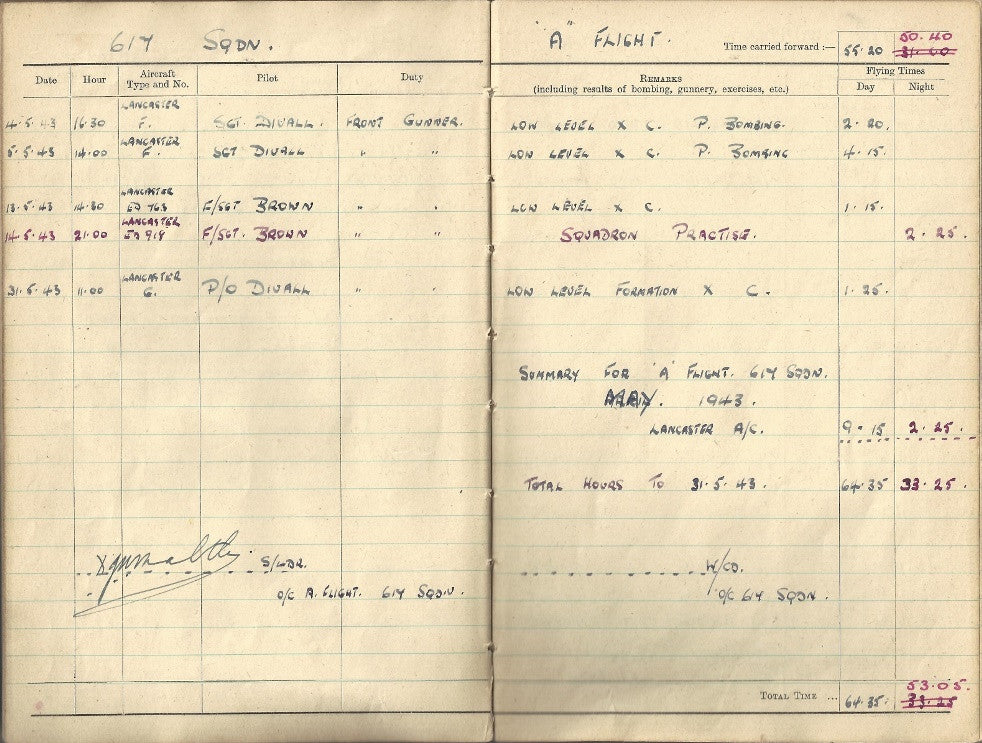 617 SQDN.
Date Hour Aircraft Type and No. Pilot Duty
4.5.43 16.30 LANCASTER F. SGT. DIVALL. FRONT GUNNER.
5.5.43 14.00 LANCASTER F. SGT DIVALL " "
13.5.43 14.30 LANCASTER ED 763 F/SGT BROWN " "
14.5.43 21.00 LANCASTER F/SGT. BROWN " "
31.5.43 11.00 LANCASTER G. P/O DIVALL " "
S/LDR.
O/C A. FLIGHT. 617 SQDN.
"A" FLIGHT.
Time carried forward :— 55.20 50.40 31.00
REMARKS
(including results of bombing, gunnery, exercises, etc.)
Flying Times
Day Night
LOW LEVEL X C. P. BOMBING. 2.20.
LOW LEVEL X C. P. BOMBING 4.15.
LOW LEVEL X C. 1.15.
SQUADRON PRACTISE. 2.25.
LOW LEVEL FORMATION X C. 1.25.
SUMMARY FOR 'A' FLIGHT. 617 SQDN.
MAY. 1943.
LANCASTER A/C. 9.15 2.25.
TOTAL HOURS TO 31.5.43. 64.35 33.25.
W/CO.
O/C 617 SQDN.
TOTAL TIME ... 64.35. 53.05. 33.25